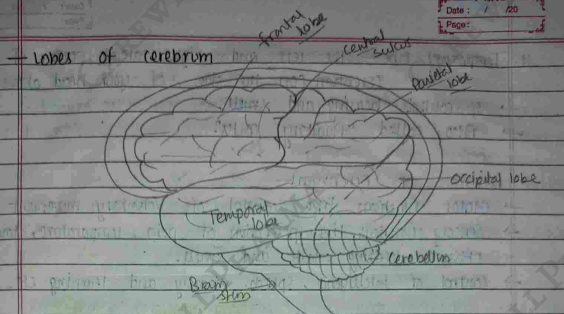 Date : / /20
Page:
— Lobes of cerebrum
frontal
lobe
central
sulcus
Parietal
lobe
Occipital lobe
Temporal
lobe
Cerebellum
Brain
stem